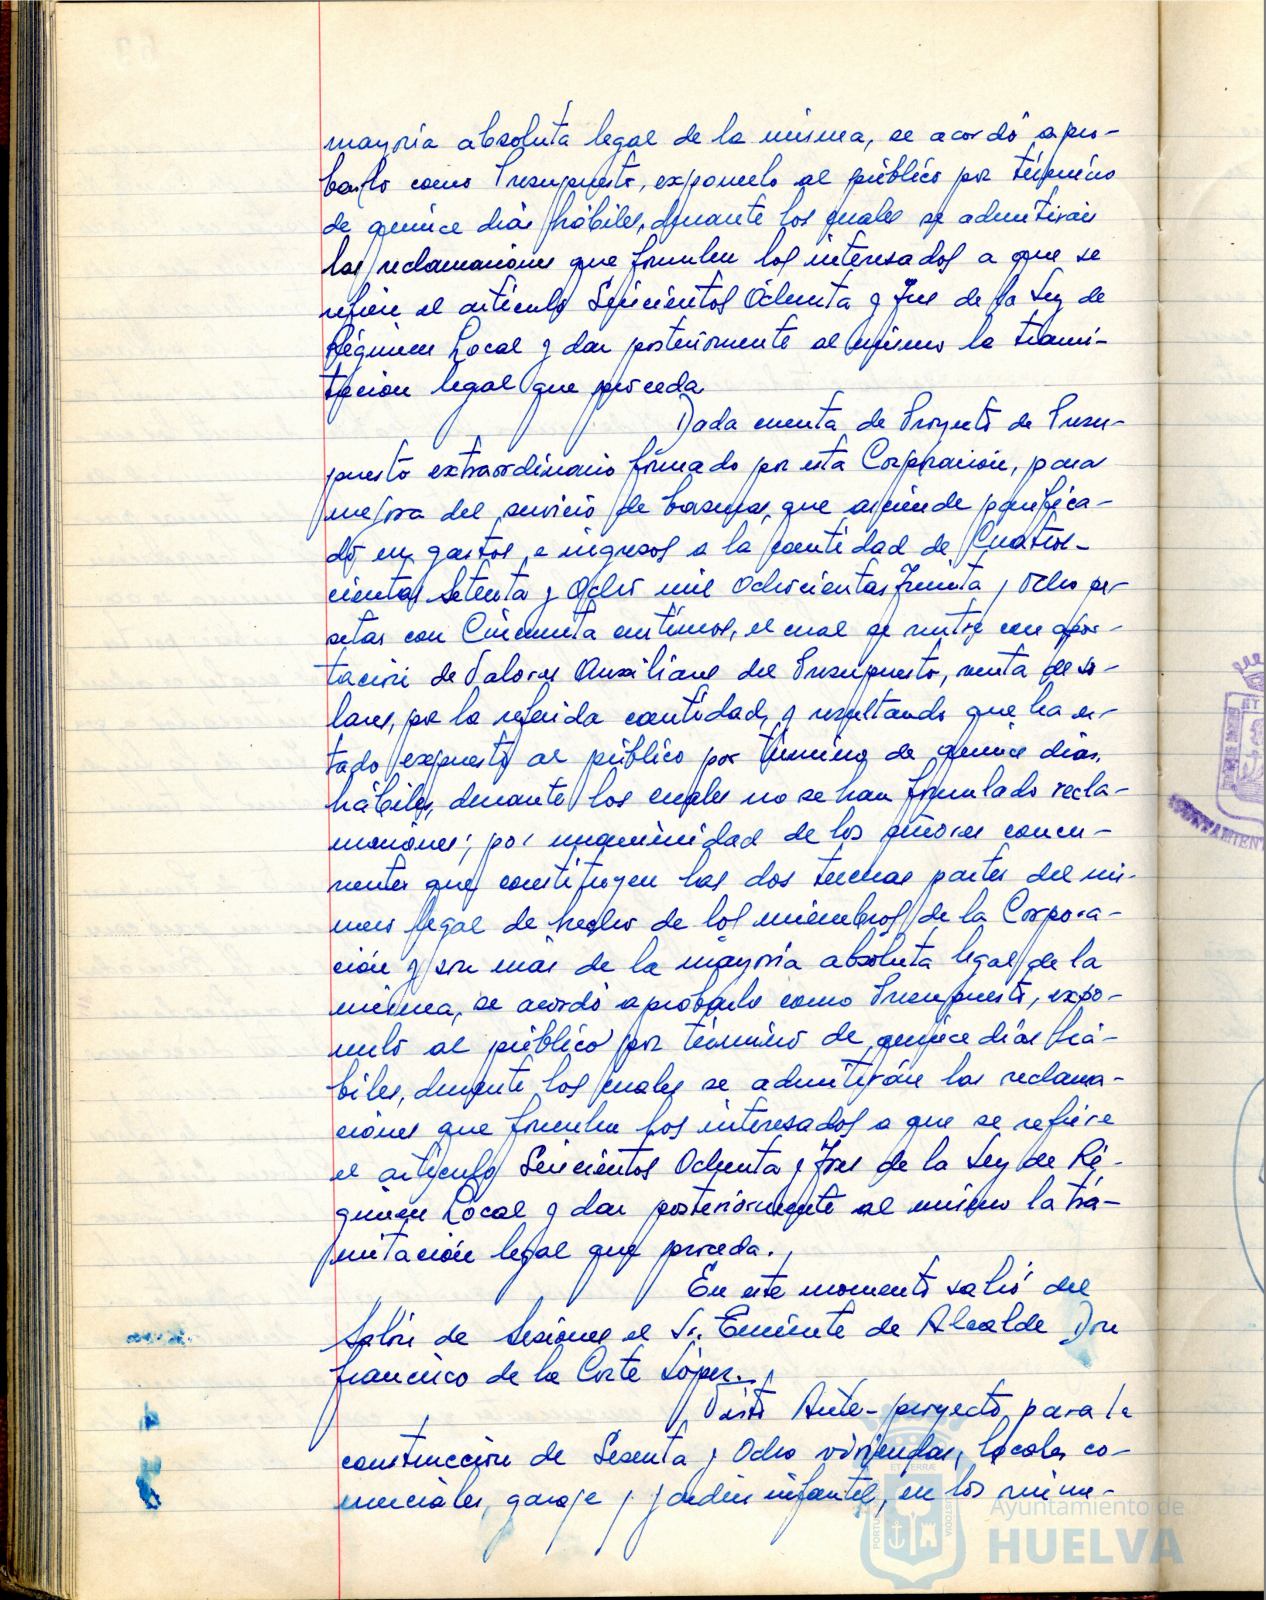 mayoría absoluta legal de la misma, se acordó apro-
barlo como Presupuesto, exponerlo al público por término
de quince días hábiles, durante los cuales se admitirán
las reclamaciones que formulen los interesados a que se
refiere el artículo Seiscientos Ochenta y Tres de la Ley de
Régimen Local y dar posteriormente al mismo la trami-
tación legal que proceda
Dada cuenta de Proyecto de Presu-
puesto extraordinario formado por esta Corporación, para
mejora del servicio de basuras, que asciende
en gastos e ingresos a la cantidad de Cuatro-
cientas Setenta y Ocho mil Ochocientas Treinta y Ocho pe-
setas con Cincuenta céntimos, el cual se nutre con apor-
tación de Valores Auxiliares del Presupuesto, venta de so-
lares, por la referida cantidad, y resultando que ha es-
tado expuesto al público por término de quince días
hábiles, durante los cuales no se han formulado recla-
maciones; por unanimidad de los señores concu-
rrentes que constituyen las dos terceras partes del nú-
mero legal de hecho de los miembros de la Corpora-
ción y son más de la mayoría absoluta legal de la
misma, se acordó aprobarlo como Presupuesto, expo-
nerlo al público por término de quince días há-
biles, durante los cuales se admitirán las reclama-
ciones que formulen los interesados a que se refiere
el artículo Seiscientos Ochenta y Tres de la Ley de Ré-
gimen Local y dar posteriormente al mismo la tra-
mitación legal que proceda.
En este momento salió del
Salón de Sesiones el Sr. Teniente de Alcalde Don
Francisco de la Corte López.
Visto Ante-proyecto para la
construcción de Sesenta y Ocho viviendas, locales co-
merciales, garaje y jardín infantil, en los núme-
Ayuntamiento de
HUELVA